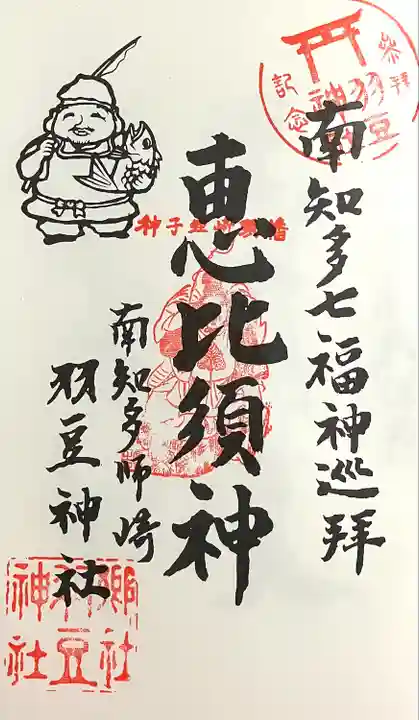 参拝
羽豆
神社
記念
南知多七福神巡拝
恵比須神
南知多師崎
羽豆神社
郷社
羽豆
神社